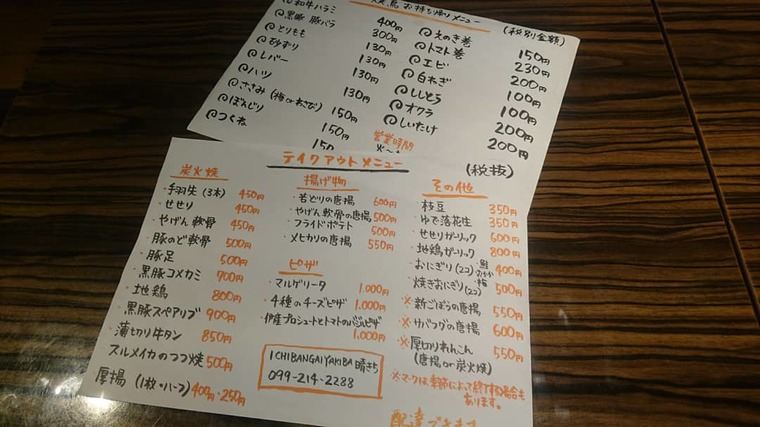 焼鳥お持ち帰りメニュー
(税別金額)
和牛ハラミ 400円
黒豚 豚バラ 300円
とりもも 130円
砂ずり 130円
レバー 130円
ハツ 130円
ささみ(梅 or わさび) 150円
ぼんじり 150円
つくね 150
えのき巻 150円
トマト巻 230円
エビ 200円
白ねぎ 100円
ししとう 100円
オクラ 200円
しいたけ 200円
営業時間
テイクアウトメニュー
(税抜)
炭火焼
・手羽先(3本) 450円
・せせり 450円
・やげん軟骨 450円
・豚のど軟骨 500円
・豚足 500円
・黒豚コメカミ 700円
・地鶏 800円
・黒豚スペアリブ 900円
・薄切り牛タン 850円
スルメイカのつつ焼 500円
厚揚(1枚・ハーフ) 400円・250円
揚げ物
・若どりの唐揚 600円
・やげん軟骨の唐揚 500円
・フライドポテト 500円
・メヒカリの唐揚 550円
ピザ
・マルゲリータ 1,000円
・4種のチーズピザ 1,000円
・伊産プロシュートとトマトのバジルピザ 1,000円
ICHIBANGAIYAKIBA 晴きち
099-214-2288
その他
・枝豆 350円
・ゆで落花生 350円
・せせりガーリック 600円
・地鶏ガーリック 800円
・おにぎり(2コ)・鮭・おかか・梅 400円
・焼きおにぎり(2コ) 500円
※新ごぼうの唐揚 550円
※ケバブの唐揚 600円
※厚切りれんこん 550円
(唐揚 or 炭火焼)
※マークは季節によって終了する場合もあります。
配達できます